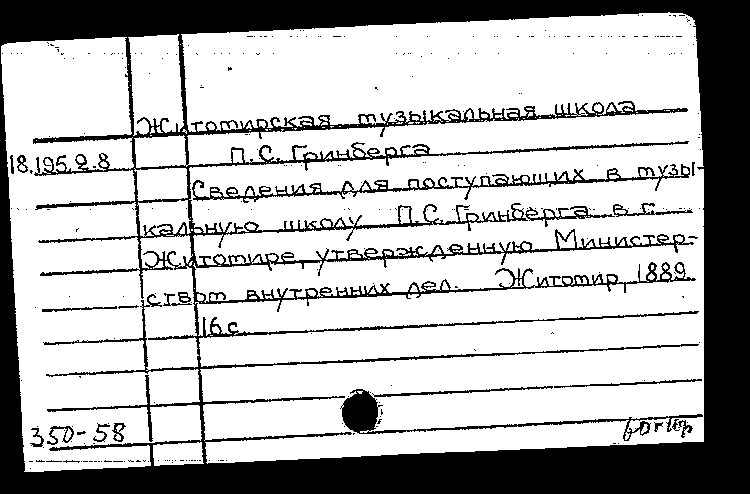 Житомирская музыкальная школа
18.195.2.8 П.С. Гринберга
Сведения для поступающих в музы-
кальную школу П.С. Гринберга в г.
Житомире, утвержденную Министер-
ством внутренних дел. Житомир, 1889.
16 с.
350-58